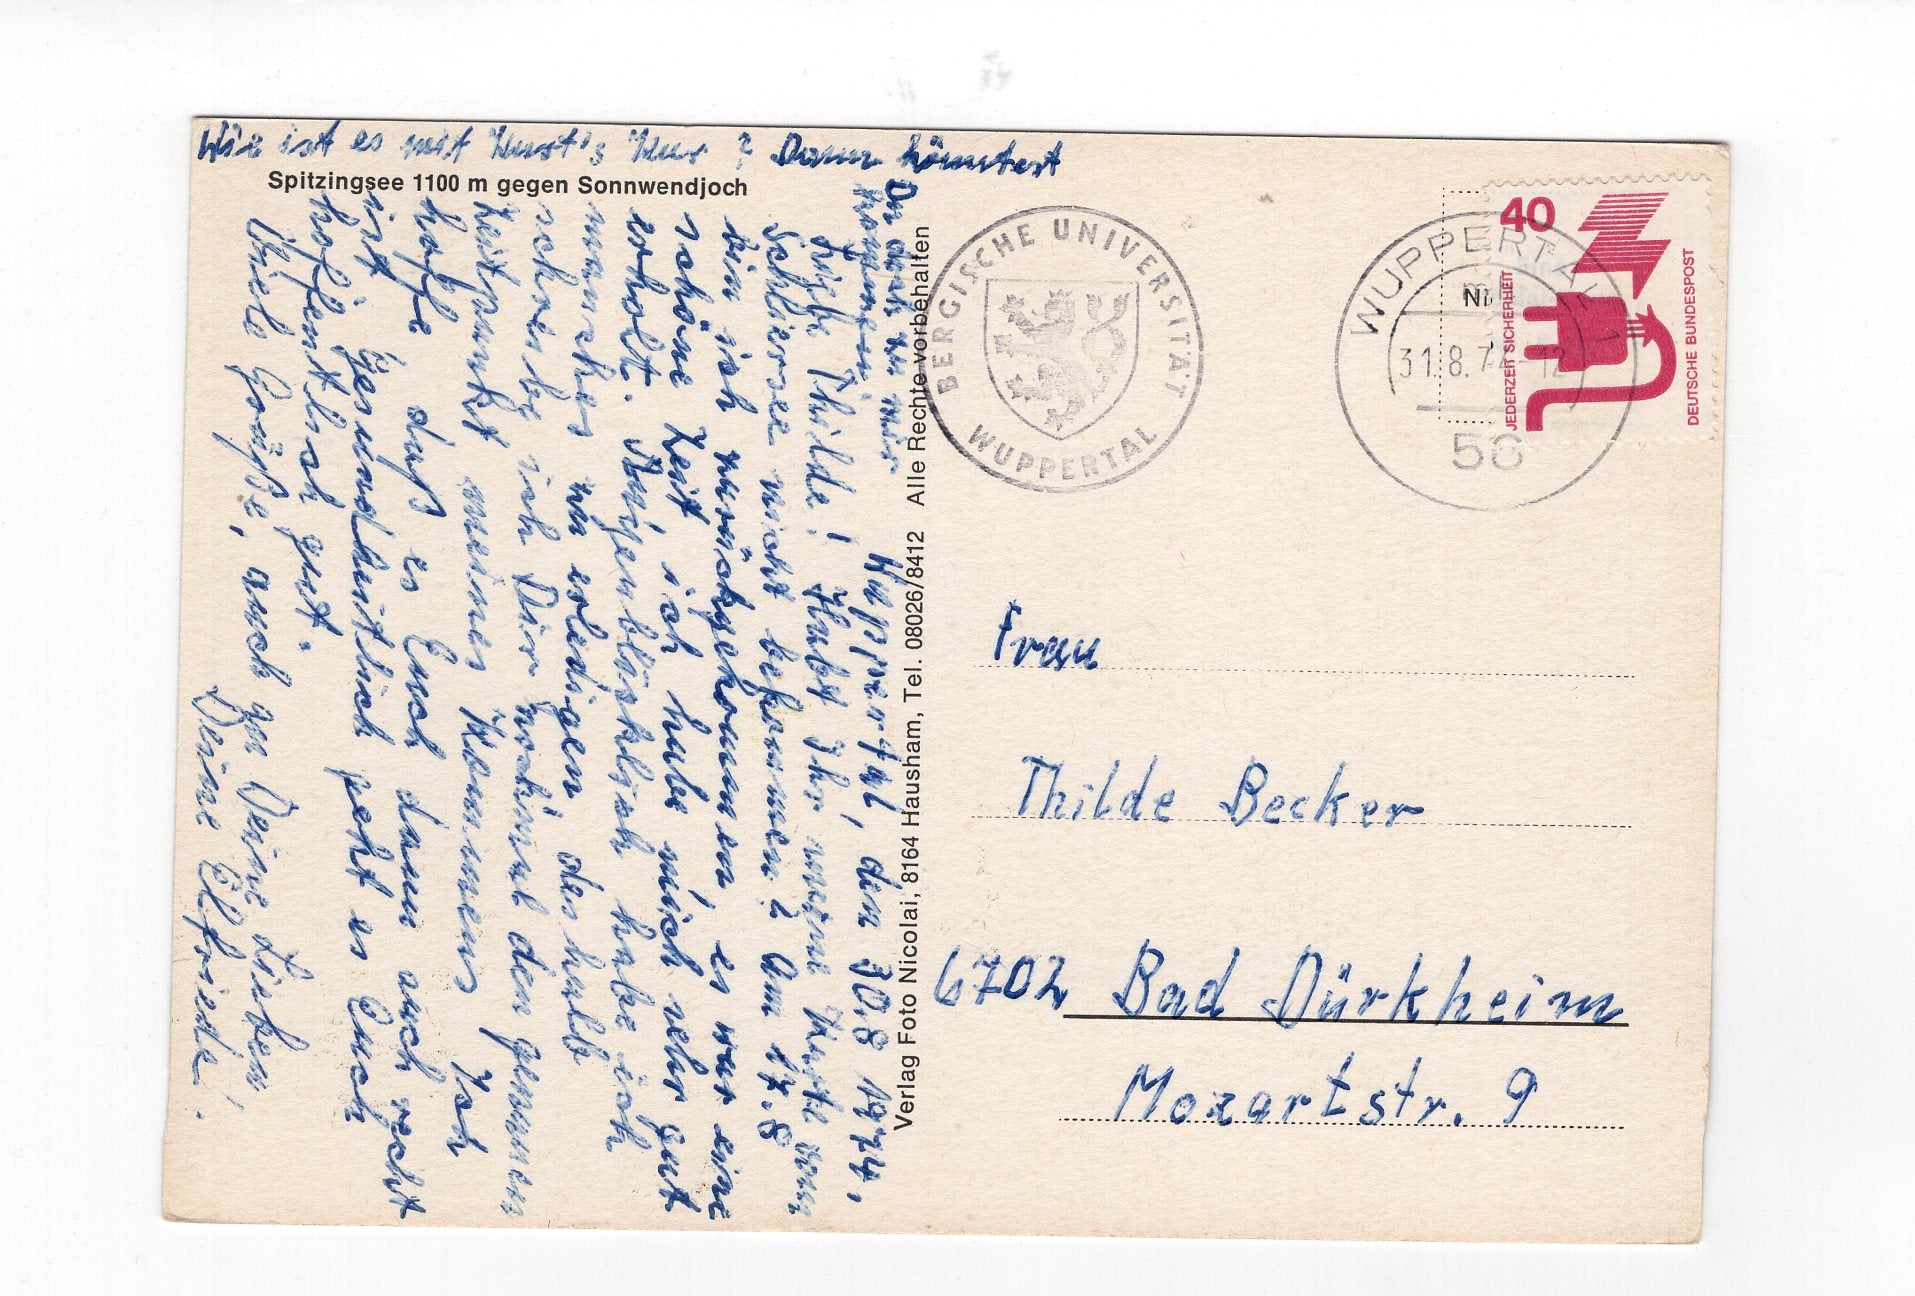 Wie ist es mit Kurt's Kur? Dann könntest
Du doch zu mir
kommen.
Spitzingsee 1100 m gegen Sonnwendjoch
Wuppertal, den 30.8 1974.
Liebe Thilde! Habt Ihr meine Karte vom
Schliersee nicht bekommen? Am 17.8
bin ich zurückgekommen, es war eine
schöne Zeit, ich habe mich sehr gut
erholt. Augenblicklich habe ich
manches zu erledigen deshalb
schreibe ich Dir nochmal den genauen
Zeitpunkt meines Kommens Ich
hoffe daß es Euch dann auch recht
ist Gesundheitlich geht es Euch
hoffentlich gut.
Viele Grüße, auch an Deine Lieben,
Deine Elfriede.
Verlag Foto Nicolai, 8164 Hausham, Tel. 08026/8412 Alle Rechte vorbehalten
BERGISCHE UNIVERSITÄT
WUPPERTAL
WUPPERTAL 1
31.8.74-12
56
40
JEDERZEIT SICHERHEIT
DEUTSCHE BUNDESPOST
Frau
Thilde Becker
6702 Bad Dürkheim
Mozartstr. 9